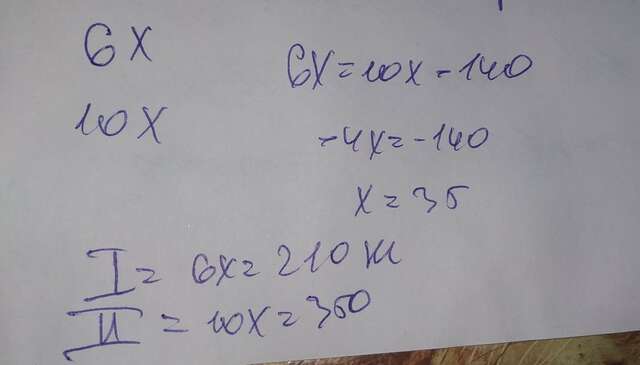 6x
6x=10x-140
10x
-4x=-140
x=35
I= 6x=210 м
II = 10x=350